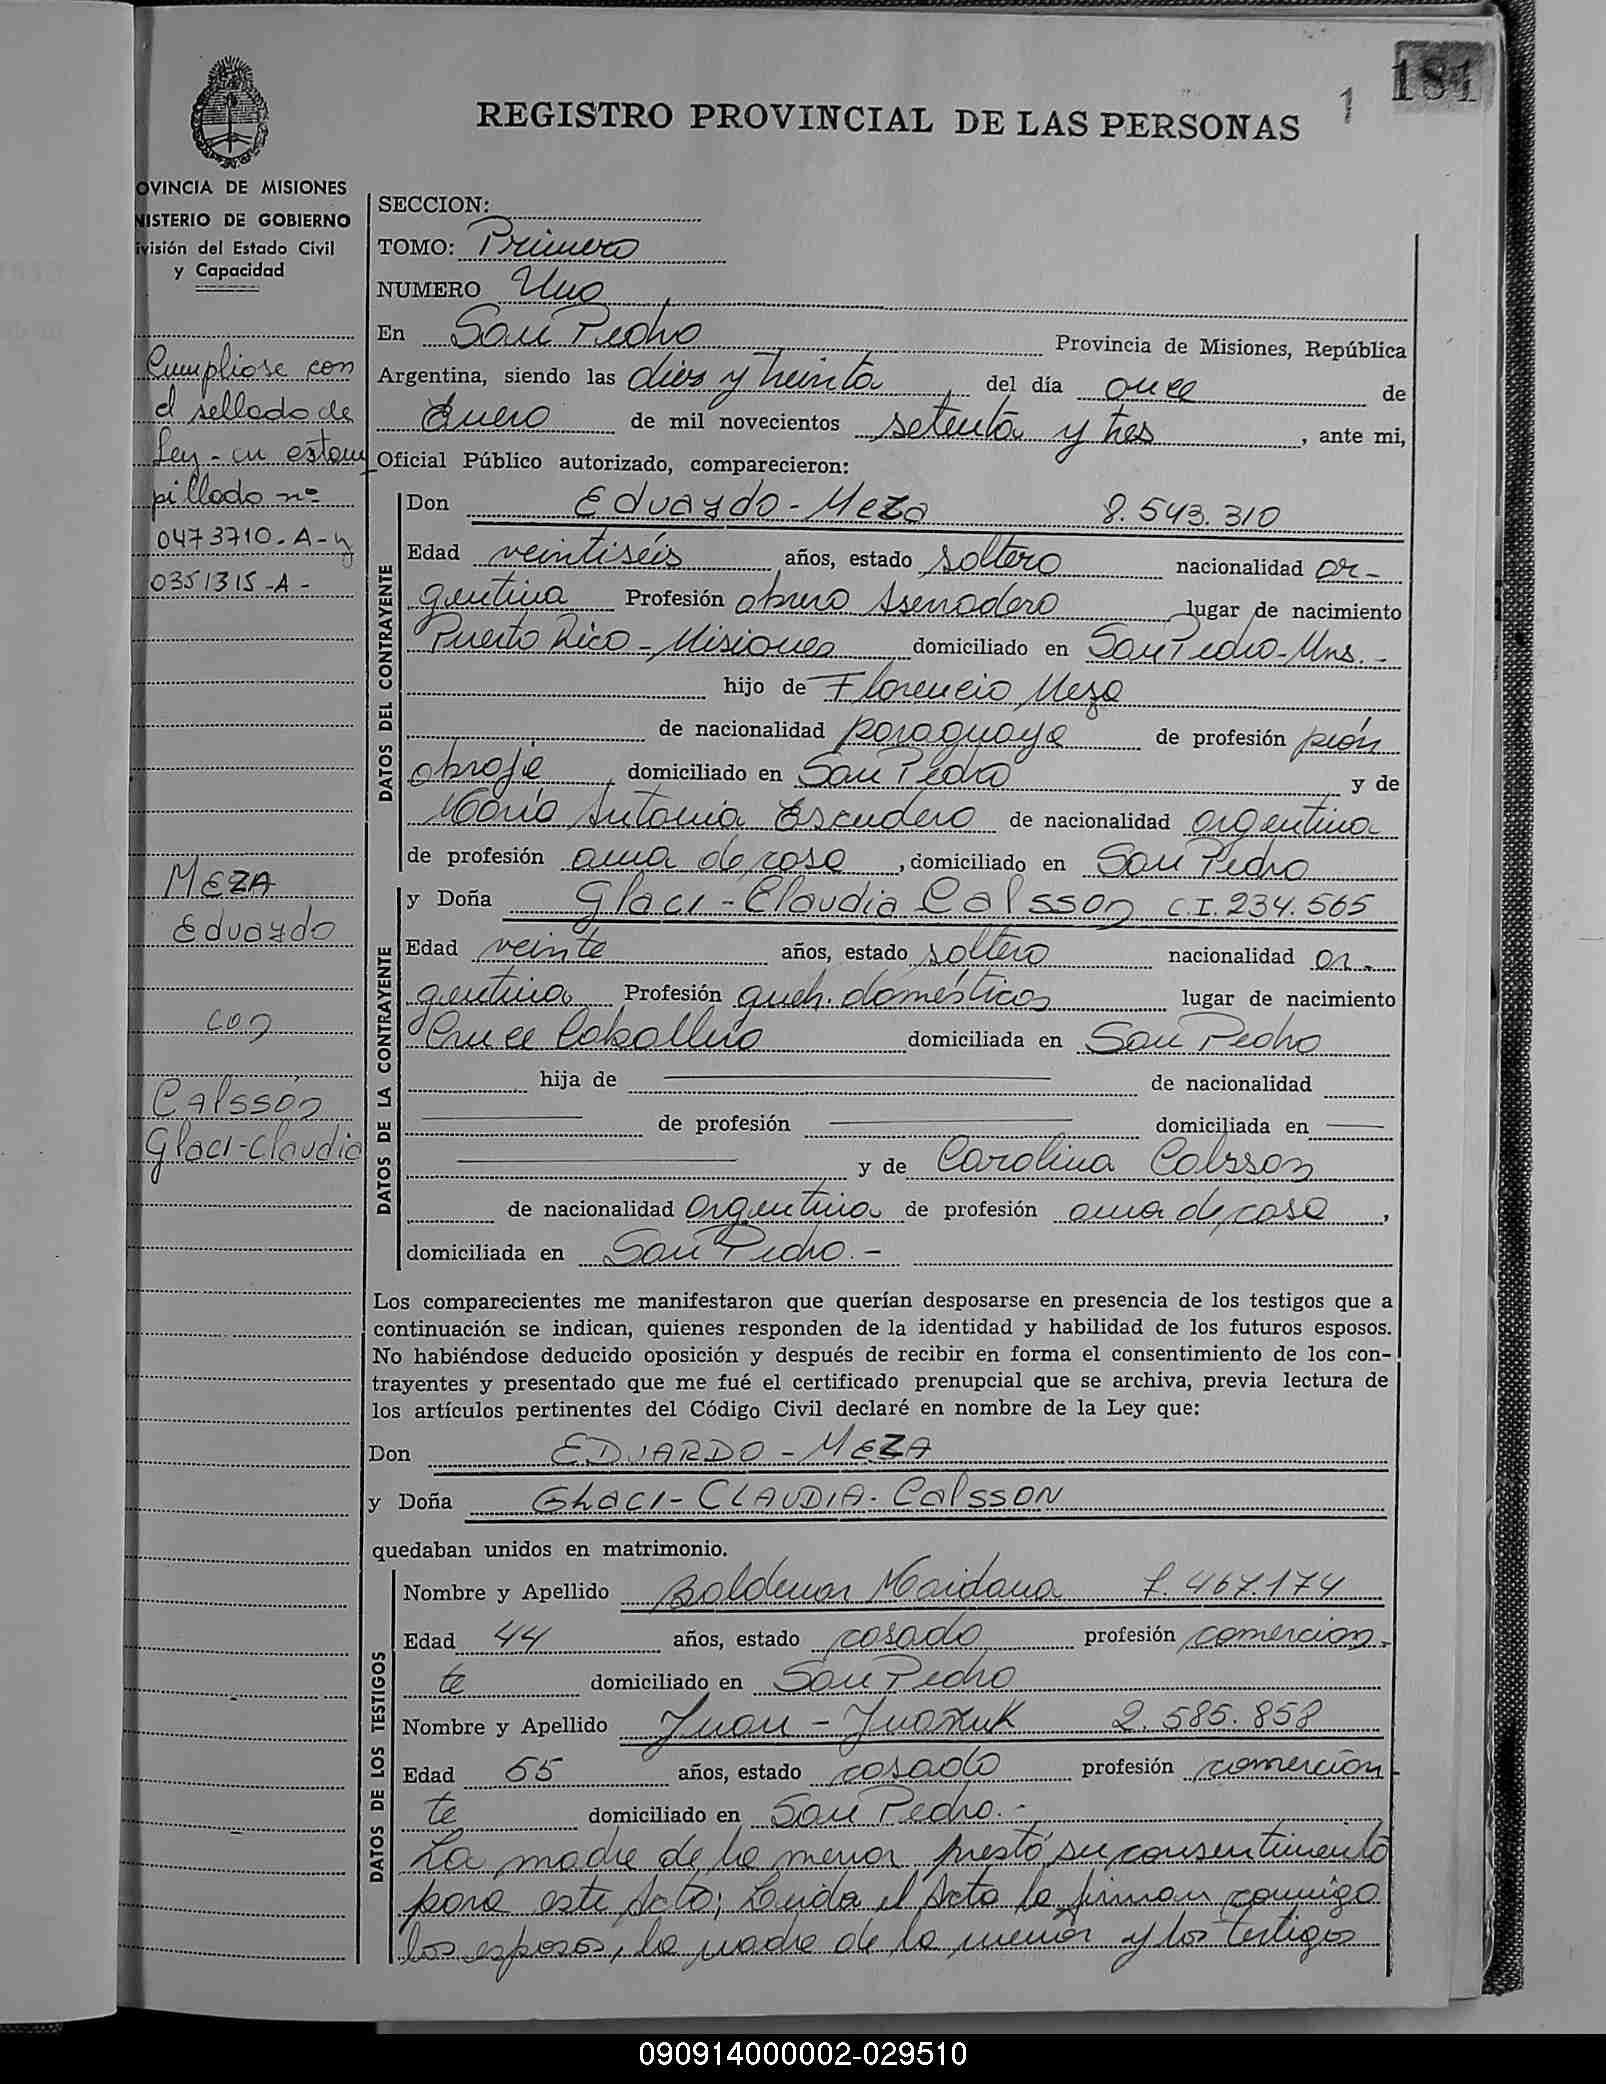 1
181
REGISTRO PROVINCIAL DE LAS PERSONAS
OVINCIA DE MISIONES
NISTERIO DE GOBIERNO
ivisión del Estado Civil
y Capacidad
Cumpliose con
el sellado de
Ley - en estam
pillado nº
0473710-A-y
0351315-A-
MEZA
Eduardo
con
Calssón
Glaci-Claudia
SECCION:
TOMO: Primero
NUMERO Uno
En San Pedro Provincia de Misiones, República
Argentina, siendo las diez y treinta del día once de
Enero de mil novecientos setenta y tres, ante mi,
Oficial Público autorizado, comparecieron:
DATOS DEL CONTRAYENTE
Don Eduardo - Meza 8.543.310
Edad veintiséis años, estado soltero nacionalidad ar-
gentina Profesión obrero Aserradero lugar de nacimiento
Puerto Rico - Misiones domiciliado en San Pedro - Mns. -
hijo de Florencio Meza
de nacionalidad paraguaya de profesión peón
obraje domiciliado en San Pedro y de
María Antonia Escudero de nacionalidad argentina
de profesión ama de casa, domiciliado en San Pedro
DATOS DE LA CONTRAYENTE
y Doña Glaci - Claudia Calsson C.I. 234.565
Edad veinte años, estado soltera nacionalidad ar-
gentina Profesión queh. domésticos lugar de nacimiento
Cruce Caballero domiciliada en San Pedro
hija de ——— de nacionalidad
——— de profesión ——— domiciliada en ———
——— y de Carolina Calsson
de nacionalidad argentina de profesión ama de casa,
domiciliada en San Pedro. -
Los comparecientes me manifestaron que querían desposarse en presencia de los testigos que a
continuación se indican, quienes responden de la identidad y habilidad de los futuros esposos.
No habiéndose deducido oposición y después de recibir en forma el consentimiento de los con-
trayentes y presentado que me fué el certificado prenupcial que se archiva, previa lectura de
los artículos pertinentes del Código Civil declaré en nombre de la Ley que:
Don EDUARDO - MEZA
y Doña GLACI - CLAUDIA - CALSSON
quedaban unidos en matrimonio.
DATOS DE LOS TESTIGOS
Nombre y Apellido Baldemar Maidana 7.467.174
Edad 44 años, estado casado profesión comercian-
te domiciliado en San Pedro
Nombre y Apellido Juan - 2.585.858
Edad 55 años, estado casado profesión comercian-
te domiciliado en San Pedro. -
La madre de la menor, prestó su consentimiento
para este Acto; Leída el Acta la firman conmigo
los esposos, la madre de la menor y los testigos
090914000002-029510